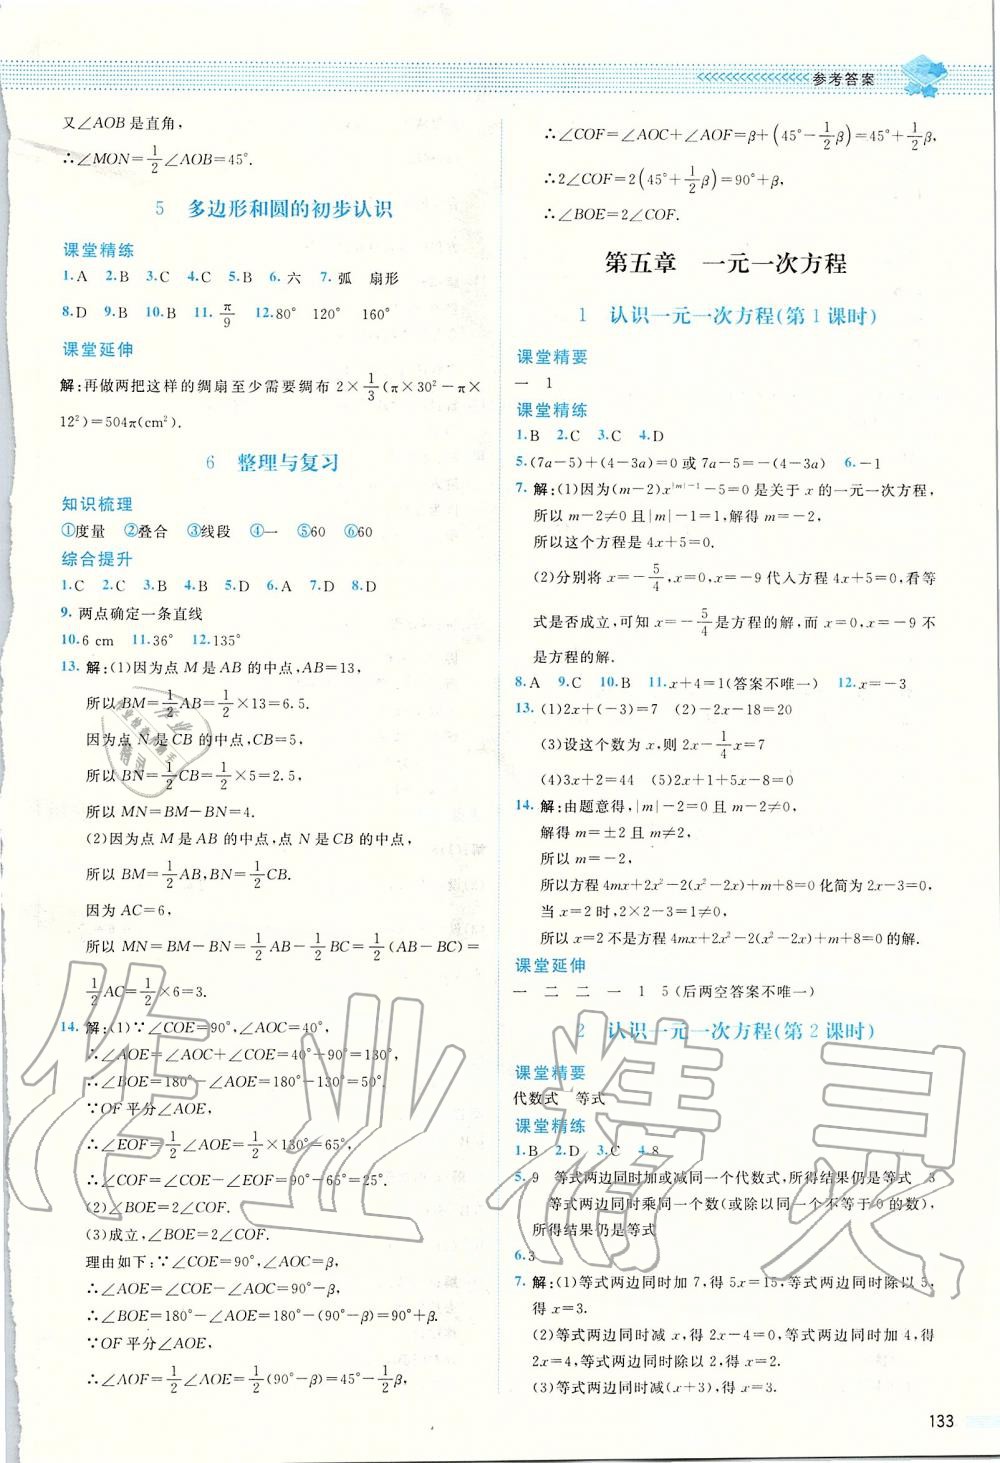 参考答案
又∠AOB是直角,
∴∠MON=1/2∠AOB=45°.
5 多边形和圆的初步认识
课堂精练
1.A 2.B 3.C 4.C 5.B 6.六 7.弧 扇形
8.D 9.B 10.B 11.π/9 12.80° 120° 160°
课堂延伸
解:再做两把这样的绸扇至少需要绸布2×1/3(π×30²-π×
12²)=504π(cm²).
6 整理与复习
知识梳理
①度量 ②叠合 ③线段 ④一 ⑤60 ⑥60
综合提升
1.C 2.C 3.B 4.B 5.D 6.A 7.D 8.D
9.两点确定一条直线
10.6 cm 11.36° 12.135°
13.解:(1)因为点M是AB的中点,AB=13,
所以BM=1/2AB=1/2×13=6.5.
因为点N是CB的中点,CB=5,
所以BN=1/2CB=1/2×5=2.5,
所以MN=BM-BN=4.
(2)因为点M是AB的中点,点N是CB的中点,
所以BM=1/2AB,BN=1/2CB.
因为AC=6,
所以MN=BM-BN=1/2AB-1/2BC=1/2(AB-BC)=
1/2AC=1/2×6=3.
14.解:(1)∵∠COE=90°,∠AOC=40°,
∴∠AOE=∠AOC+∠COE=40°+90°=130°,
∴∠BOE=180°-∠AOE=180°-130°=50°.
∵OF平分∠AOE,
∴∠EOF=1/2∠AOE=1/2×130°=65°,
∴∠COF=∠COE-∠EOF=90°-65°=25°.
(2)∠BOE=2∠COF.
(3)成立,∠BOE=2∠COF.
理由如下:∵∠COE=90°,∠AOC=β,
∴∠AOE=∠COE-∠AOC=90°-β,
∴∠BOE=180°-∠AOE=180°-(90°-β)=90°+β.
∵OF平分∠AOE,
∴∠AOF=1/2∠AOE=1/2(90°-β)=45°-1/2β,
∴∠COF=∠AOC+∠AOF=β+(45°-1/2β)=45°+1/2β,
∴2∠COF=2(45°+1/2β)=90°+β,
∴∠BOE=2∠COF.
第五章 一元一次方程
1 认识一元一次方程(第1课时)
课堂精要
一 1
课堂精练
1.B 2.C 3.C 4.D
5.(7a-5)+(4-3a)=0或7a-5=-(4-3a) 6.-1
7.解:(1)因为(m-2)x^|m|-1-5=0是关于x的一元一次方程,
所以m-2≠0且|m|-1=1,解得m=-2,
所以这个方程是4x+5=0.
(2)分别将x=-5/4,x=0,x=-9代入方程4x+5=0,看等
式是否成立,可知x=-5/4是方程的解,而x=0,x=-9不
是方程的解.
8.A 9.C 10.B 11.x+4=1(答案不唯一) 12.x=-3
13.(1)2x+(-3)=7 (2)-2x-18=20
(3)设这个数为x,则2x-1/4x=7
(4)3x+2=44 (5)2x+1+5x-8=0
14.解:由题意得,|m|-2=0且m-2≠0,
解得m=±2且m≠2,
所以m=-2,
所以方程4mx+2x²-2(x²-2x)+m+8=0化简为2x-3=0,
当x=2时,2×2-3=1≠0,
所以x=2不是方程4mx+2x²-2(x²-2x)+m+8=0的解.
课堂延伸
一 二 二 一 1 5(后两空答案不唯一)
2 认识一元一次方程(第2课时)
课堂精要
代数式 等式
课堂精练
1.B 2.D 3.C 4.8
5.9 等式两边同时加或减同一个代数式,所得结果仍是等式 3
等式两边同时乘同一个数(或除以同一个不等于0的数),
所得结果仍是等式
6.3
7.解:(1)等式两边同时加7,得5x=15,等式两边同时除以5,
得x=3.
(2)等式两边同时减x,得2x-4=0,等式两边同时加4,得
2x=4,等式两边同时除以2,得x=2.
(3)等式两边同时减(x+3),得x=3.
133
作业精灵